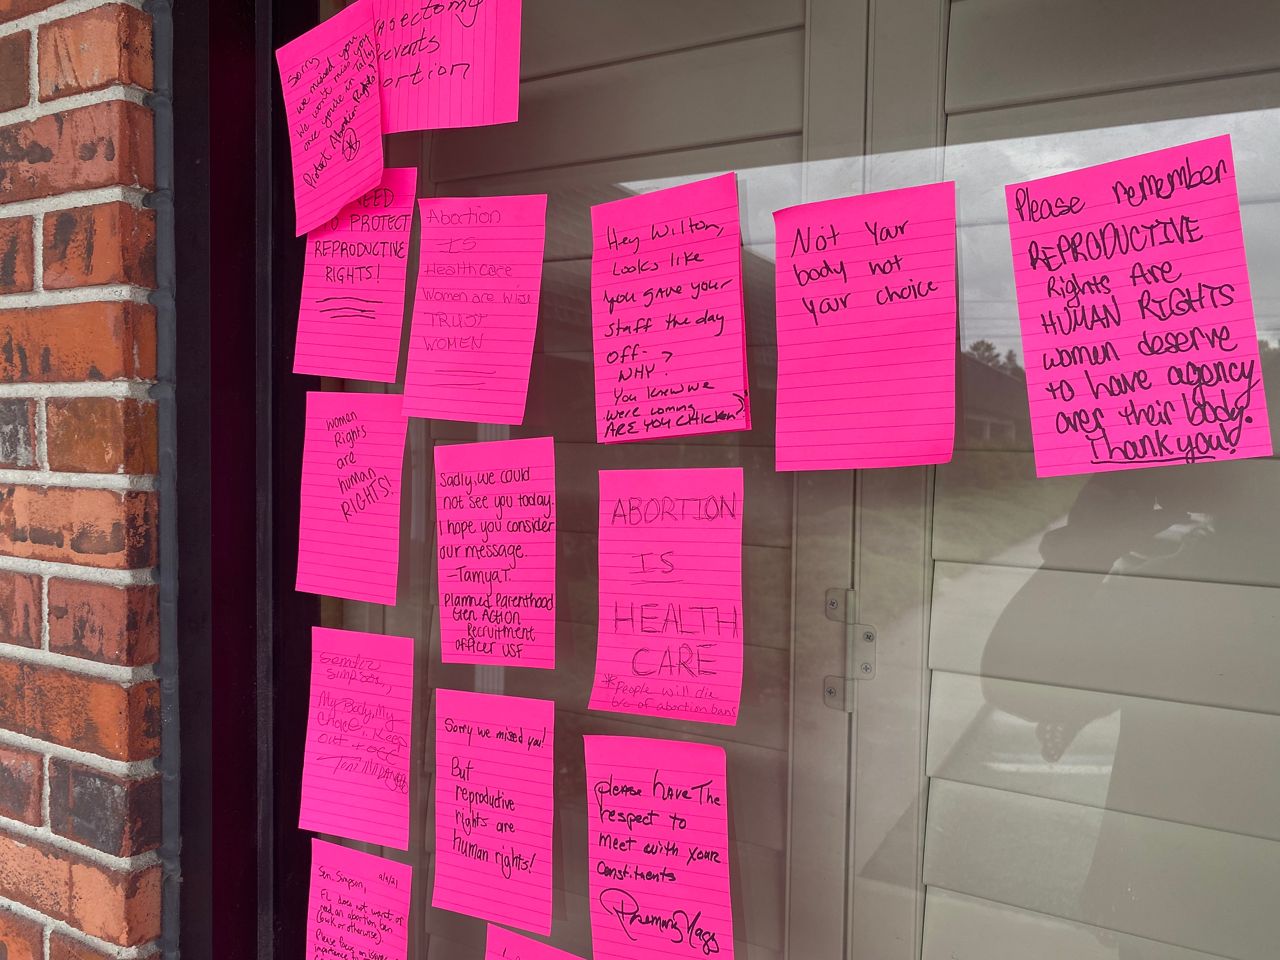 Sorry
we missed you.
We won't miss you
once you're in Tally
Protect Abortion Rights!
asectomy
revents
ortion
NEED
TO PROTECT
REPRODUCTIVE
RIGHTS!
Abortion
IS
Healthcare
Women are wise
TRUST
WOMEN
Hey Wilton,
Looks like
you gave your
staff the day
off-
WHY?
You knew we
were coming
ARE YOU CHICKEN?
Not Your
body not
Your choice
Please remember
REPRODUCTIVE
Rights Are
HUMAN RIGHTS
women deserve
to have agency
over their body.
Thank you!
women
Rights
are
human
RIGHTS!
Sadly, we could
not see you today.
I hope you consider
our message.
-Tamya T.
Planned Parenthood
Gen Action
Recruitment
officer USF
ABORTION
IS
HEALTH
CARE
*People will die
b/c of abortion bans
Senator
Simpson,
My Body, My
choice, Keep
out
Sorry we missed you!
But
reproductive
rights are
human rights!
please have The
respect to
meet with your
constituents
Sen. Simpson,
FL does not want, or
need an abortion ban
(6wk or otherwise).
Please focus on issues of
importance to